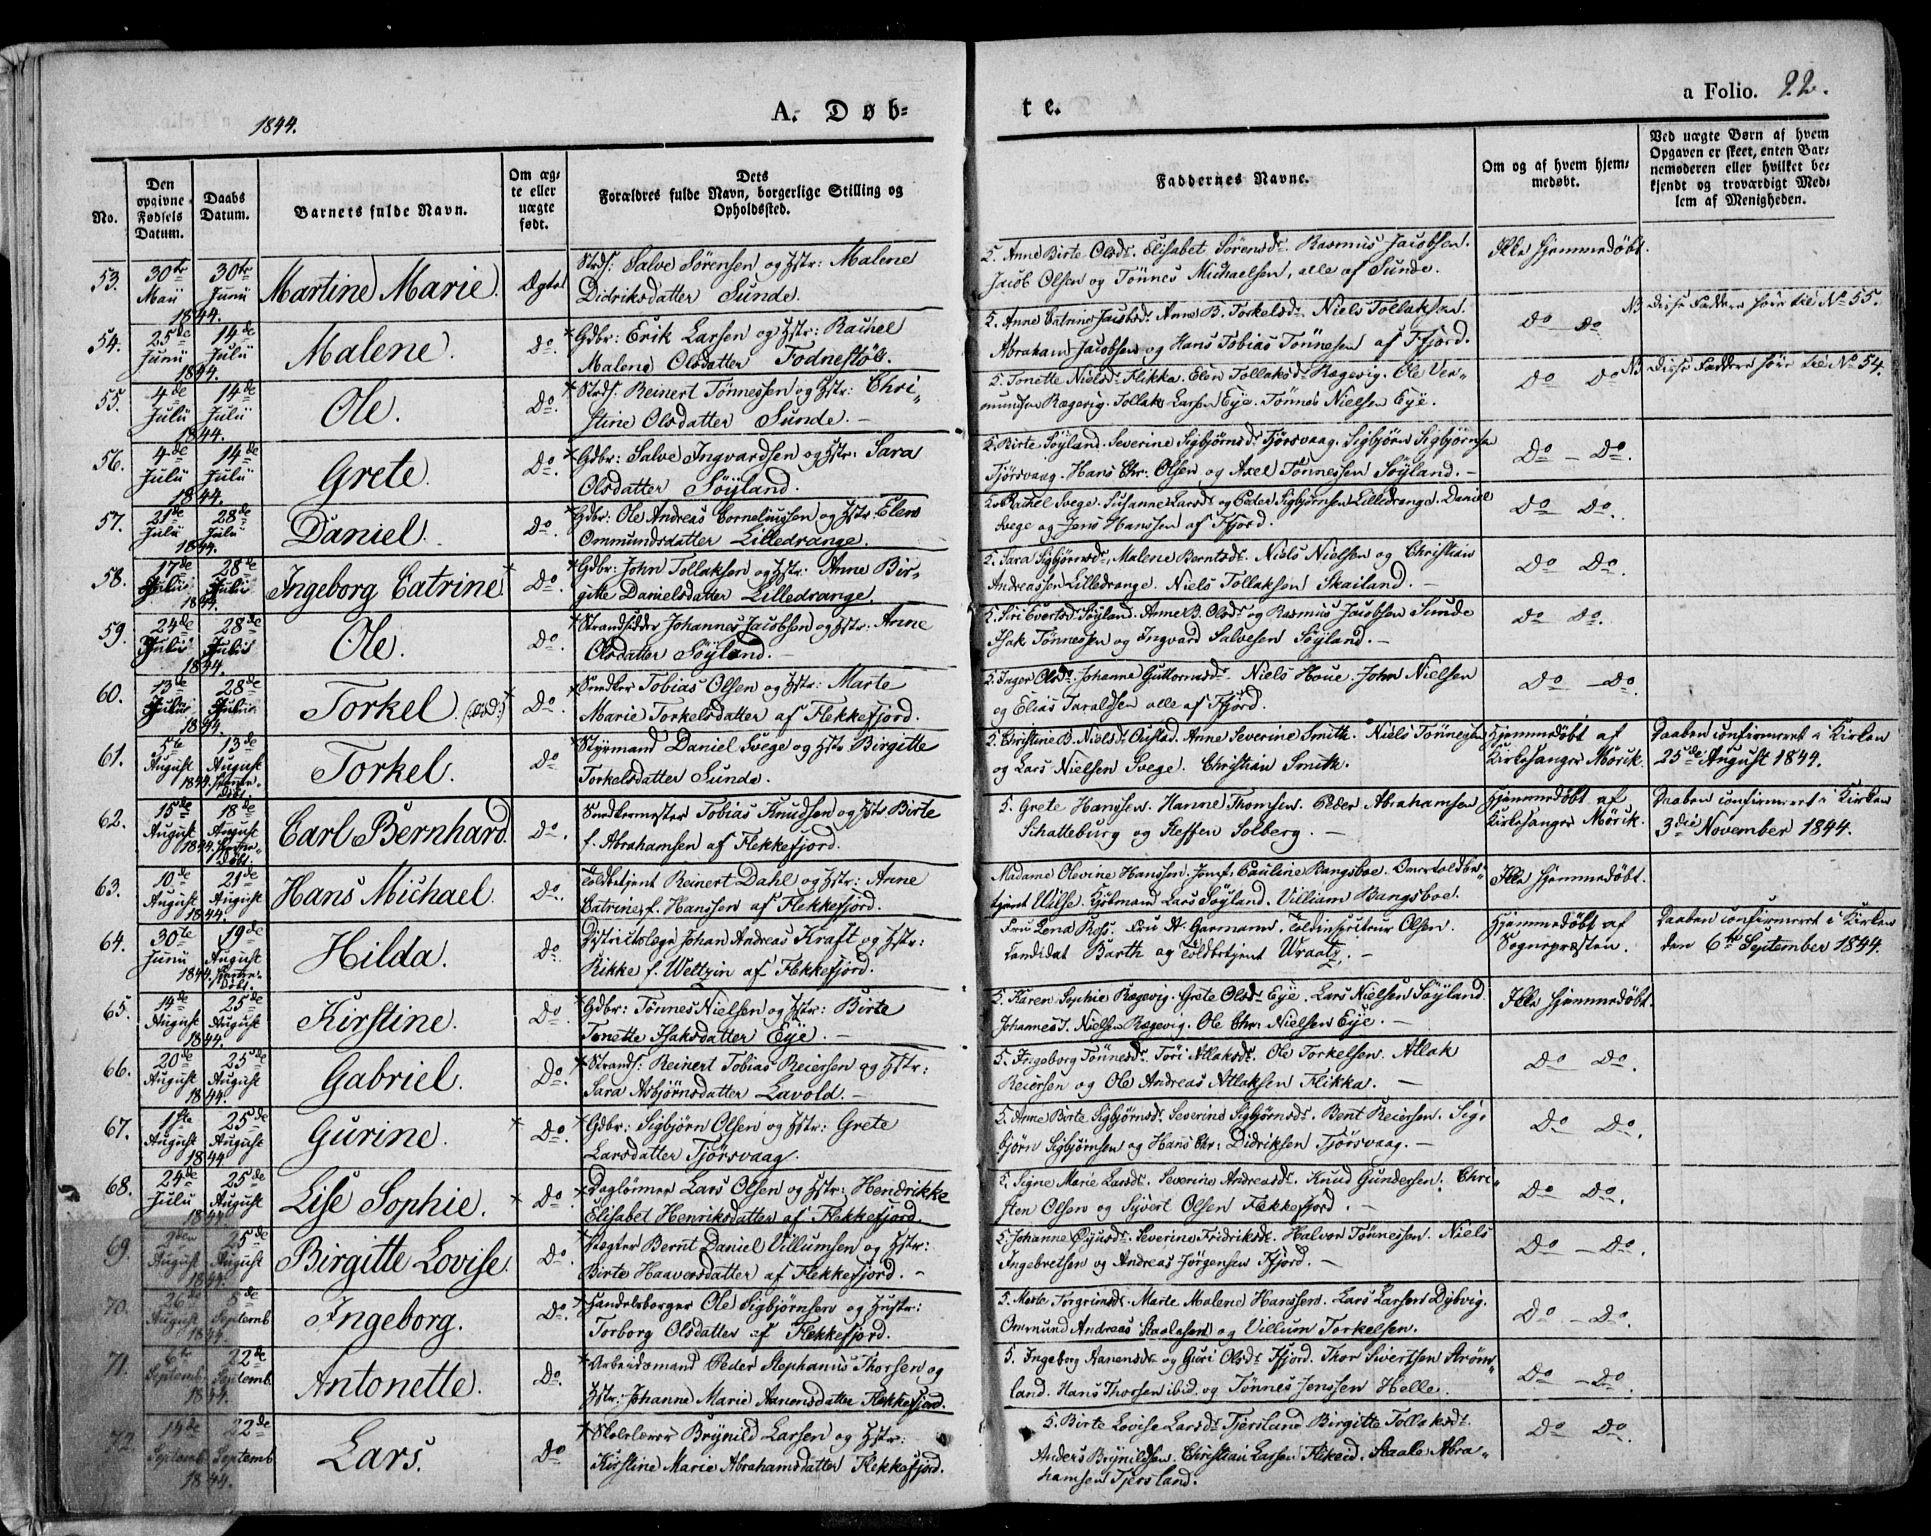 1844.
A. Døb-
te.
a Folio. 22.
No.
Den opgivne Fødsels Datum.
Daabs Datum.
Barnets fulde Navn.
Om ægte eller uægte født.
Dets
Forældres fulde Navn, borgerlige Stilling og
Opholdssted.
Faddernes Navne.
Om og af hvem hjemmedøbt.
Ved uægte Børn af hvem
Opgaven er skeet, enten Bar-
nemoderen eller hvilket be-
kjendt og troværdigt Med-
lem af Menigheden.
53. 30te Maii 1844. 30te Junii Martine Marie. Ægte
Strds: Salve Sørensen og Hstr: Malene
Didriksdatter Sunde.
5. Anne Birte Olsdt. Elisabet Sørensdt. Rasmus Jacobsen.
Jacob Olsen og Tönnes Michaelsen, alle af Sunde.
Ikke Hjemmedøbt.
54. 25de Junii 1844. 14de Julii Malene. Do.
Gdbr: Erik Larsen og Hstr: Rachel
Malene Olsdatter Fodnestöl.
5. Anne Catrine Jacobsdt. Anne B. Torkelsdt. Niels Tollaksen.
Abraham Jacobsen og Hans Tobias Tönnesen af Ffjord.
Do Do. NB Disse Faddere höre til No 55.
55. 4de Julii 1844. 14de Julii Ole. Do.
Strds. Reinert Tönnessen og Hstr: Chri-
stine Olsdatter Sunde.
5. Tonette Nielsdt. Flikka. Elen Tollaksdt. Rægevig. Ole Ver-
mundsen Rægevig. Tollak Larsen Eye. Tönnes Nielsen Eye.
Do Do NB Disse Faddere höre til No 54.
56. 4de Julii 1844. 14de Julii Grete. Do.
Gdbr: Salve Ingvardsen og Hstr. Sara
Olsdatter Söyland.
5. Birte Söyland. Severine Sigbjörnsdt. Tjörsvaag. Sigbjörn Sigbjörnsen
Tjörsvaag. Hans Chr. Olsen og Axel Tönnessen Söyland.
Do - Do.
57. 21de Julii 1844. 28de Julii Daniel. Do.
Gdbr: Ole Andreas Corneliussen og Hstr. Elen
Ommundsdatter Lilledrange.
5. Rachel Svege. Susanne Larsdt. og Peder Sigbjörnsen Lilledrange. Daniel
Svege og Jens Hanssen af Ffjord.
Do Do.
58. 17de Julii 1844. 28de Julii Ingeborg Catrine. Do.
Gdbr: John Tollaksen og Hstr: Anne Bir-
gitte Danielsdatter Lilledrange.
5. Sara Sigbjörnsdt. Malene Berntsdt. Niels Nielsen og Christian
Andreassen Lilledrange. Niels Tollaksen Skailand.
Do Do.
59. 24de Julii 1844. 28de Julii Ole. Do.
Strandsidder Johannes Jacobsen og Hstr. Anne
Olsdatter Söyland.
5. Siri Evertsdt. Söyland. Anne B. Olsdt. og Rasmus Jacobsen Sunde
Isak Tönnessen og Ingvard Salvesen Söyland.
Do Do.
60. 13de Julii 1844. 28de Julii Torkel. (död) Do.
Snedker Tobias Olsen og Hstr: Marte
Marie Torkelsdatter af Flekkefjord.
5. Inger Olsdt. Johanne Guttormsdt. Niels Houe. John Nielsen
og Elias Taraldsen alle af Ffjord.
Do - Do.
61. 5te August 1844. 13de August hjemmedöbt. Torkel. Do
Styrmand Daniel Svege og Hstr Birgitte
Torkelsdatter Sunde.
5. Christine B. Nielsdt. Anne Severine Smith. Niels Tönnesen
og Lars Nielsen Svege. Christian Smith.
Hjemmedöbt af
Kirkesanger Mörik.
Daaben confirmeret i Kirken
25de August 1844.
62. 15de August 1844. 18de August hjemmedöbt. Carl Bernhard. Do.
Snedkermester Tobias Knudsen og Hstr Birte
f. Abrahamsen af Flekkefjord.
5. Grete Hanssen. Hanne Thomsen. Peder Abrahamsen
Schatteburg og Steffen Solberg.
Hjemmedöbt af
Kirkesanger Mörik.
Daaben confirmeret i Kirken
3die November 1844.
63. 10de August 1844. 21de August Hans Michael. Do.
Toldbetjent Reinert Dahl og Hstr: Anne
Catrine f. Hanssen af Flekkefjord.
Madame Olevine Hanssen. Jomf. Pauline Bangsboe. Overtoldbe-
tjent Uilse. Kjöbmann Lars Söyland. Villiam Bangsboe.
Ikke Hjemmedöbt.
64. 30te Junii 1844. 19de August hjemmedöbt. Hilda. Do
Districtslæge Johan Andreas Kraft og Hstr:
Rikke f. Weltzin af Flekkefjord.
Fru Lena Ross. Fru A. Garmann. Toldinspecteur Olsen.
Candidat Barth og Toldbetjent Wraatz.
Hjemmedöbt af
Sognepræsten.
Daaben confirmeret i Kirken
den 6te September 1844.
65. 14de August 1844. 25de August Kirstine. Do.
Gdbr: Tönnes Nielsen og Hstr: Birte
Tonette Isaksdatter Eye.
5. Karen Sophie Rægevig. Grete Olsdt Eye. Lars Nielsen Söyland.
Johannes I. Nielsen Rægevig. Ole Chr. Nielsen Eye.
Ikke Hjemmedöbt.
66. 20de August 1844. 25de August Gabriel. Do.
Strands: Reinert Tobias Reiersen og Hstr:
Sara Asbjörnsdatter Lavold.
5. Ingeborg Tönnesdt. Töri Atlaksdt. Ole Torkelsen. Atlak
Reiersen og Ole Andreas Atlaksen Flikka.
Do Do.
67. 1ste August 1844 25de August Gurine. Do.
Gdbr: Sigbjörn Olsen og Hstr: Grete
Larsdatter Tjörsvaag.
5. Anne Birte Sigbjörnsdt. Severine Sigbjörnsdt. Bent Reiersen. Sig-
björn Sigbjörnsen og Hans Chr: Didriksen Tjörsvaag.
Do Do.
68. 24de Julii 1844 25de August Lise Sophie. Do.
Daglönner Lars Olsen og Hstr: Hendrikke
Elisabet Henriksdatter af Flekkefjord.
5. Signe Marie Larsdt. Severine Andreasdt. Knud Gundersen. Chri-
sten Olsen og Syvert Olsen Flekkefjord.
Do Do.
69. August 1844. 25de August Birgitte Lovise. Do.
Vægter Bernt Daniel Villumsen og Hstr:
Birte Haaversdatter af Flekkefjord.
5. Johanne Severine Fridriksdt. Halvor Tönnessen. Niels
Ingebretsen og Andreas Jörgensen Ffjord.
Do - Do.
70. 26de August 1844. 8de Septemb Ingeborg. Do.
Handelsborger Ole Sigbjörnsen og Hustr:
Torborg Olsdatter af Flekkefjord.
5. Marte Torgrimsdt. Marte Malene Hanssen. Lars Larsen Dybvig.
Ommund Andreas Staalesen og Villum Torkelsen.
Do - Do.
71. 6te Septemb. 1844. 22de Septemb. Antonette. Do.
Arbeidsmand Peder Stephanus Thorsen og
Hstr: Johanne Marie Aanensdatter Flekkefjord.
5. Ingeborg Aanensdt og Guri Olsdt. Ffjord. Thor Sivertsen Ström-
land. Hans Thorsen ibid. og Tönnes Jenssen Helle.
Do - Do.
72. 14de Septemb. 1844 22de Septemb Lars. Do
Skolelærer Brynild Larsen og Hstr:
Kirstine Marie Abrahamsdatter Flekkefjord.
5. Birte Lovise Larsdt. Tjersland Birgitte Tollaksdt.
Anders Brynildsen. Christian Larsen Flikeid. Staale Abra-
hamsen Tjersland.
Do Do.